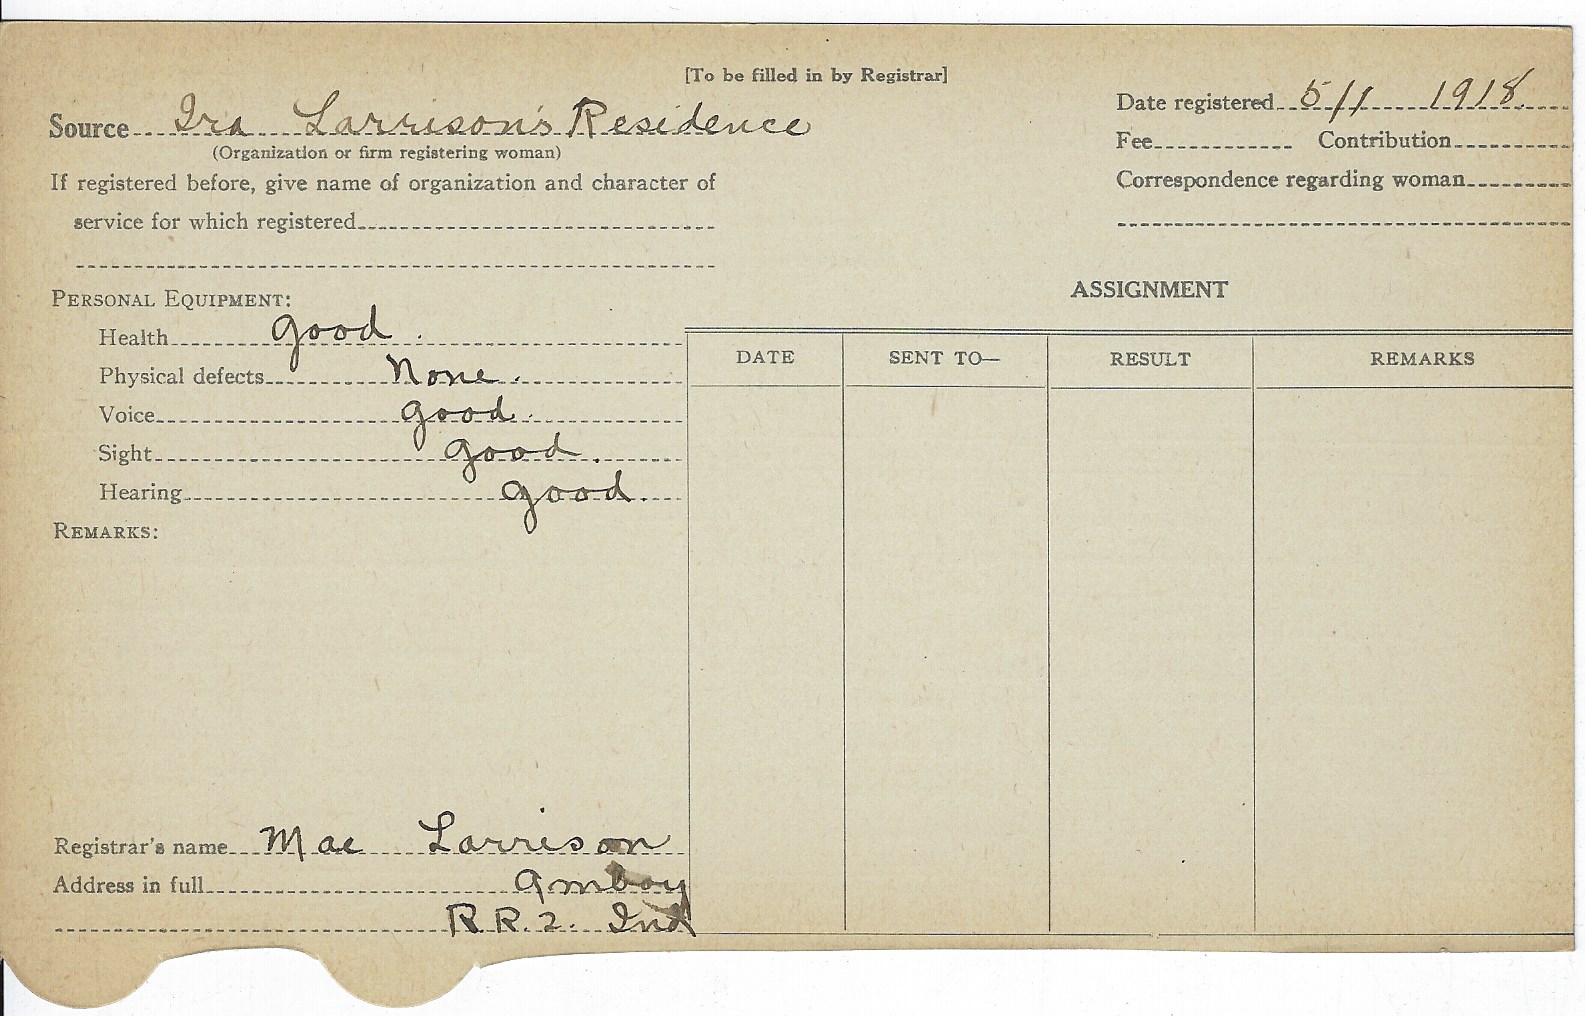 [To be filled in by Registrar]
Source Ira Larrison's Residence
(Organization or firm registering woman)
If registered before, give name of organization and character of
service for which registered
Date registered 5/1 1918.
Fee Contribution
Correspondence regarding woman
PERSONAL EQUIPMENT:
Health good.
Physical defects None.
Voice good.
Sight good.
Hearing good.
REMARKS:
ASSIGNMENT
DATE SENT TO— RESULT REMARKS
Registrar's name Mae Larrison
Address in full Amboy
R.R.2. Ind